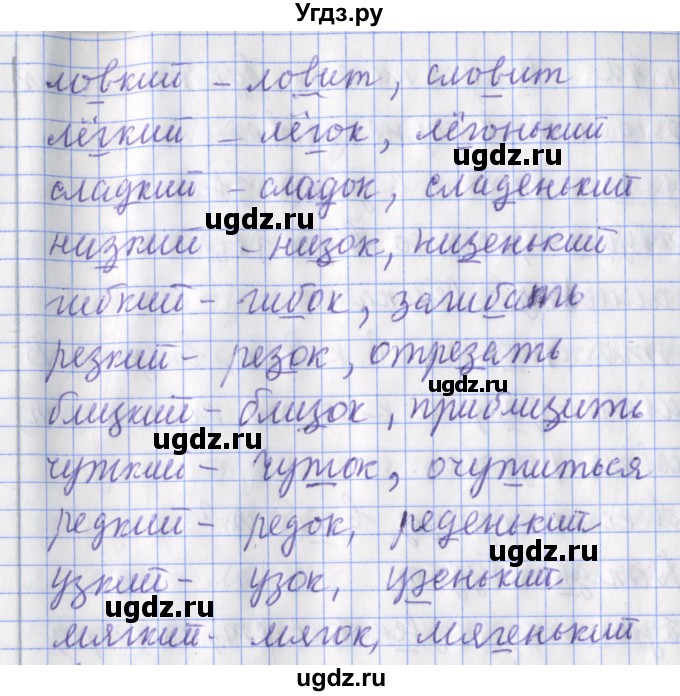 Угдз.ру
ловкий – ловит, словит
лёгкий – лёгок, лёгонький
ugdz.ru
сладкий – сладок, сладенький
ugdz.ru
низкий – низок, низенький
гибкий – гибок, загибать
резкий – резок, отрезать
ugdz.ru
близкий – близок, приблизить
ugdz.ru
чуткий – чуток, очутиться
редкий – редок, реденький
ugdz.ru
узкий – узок, узенький
ugdz.ru
мягкий – мягок, мягенький
ugdz.ru